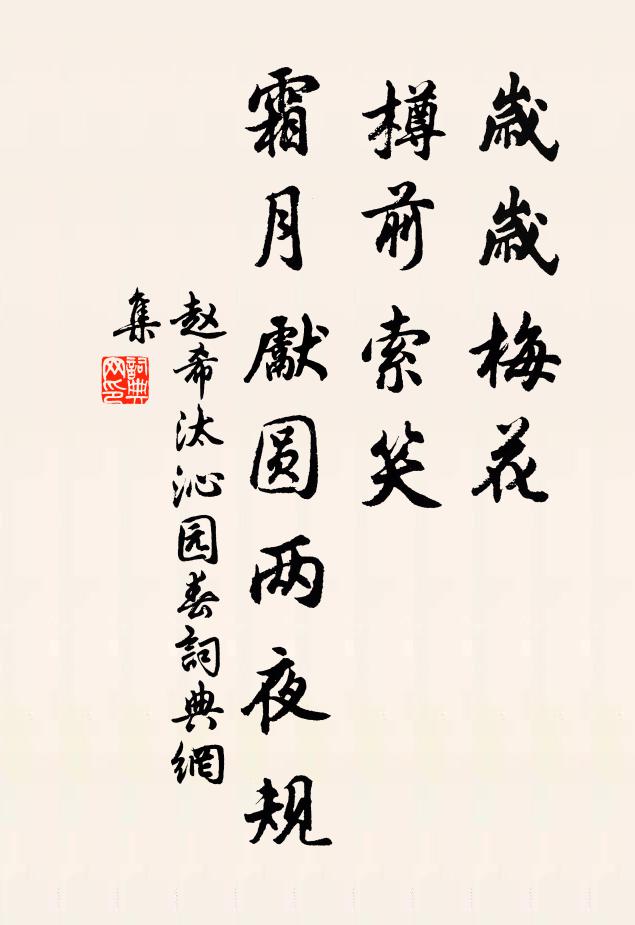 歲歲梅花
樽前索笑
霜月獻圆两夜規
赵希汰沁园春詞典網
集
詞典
网印